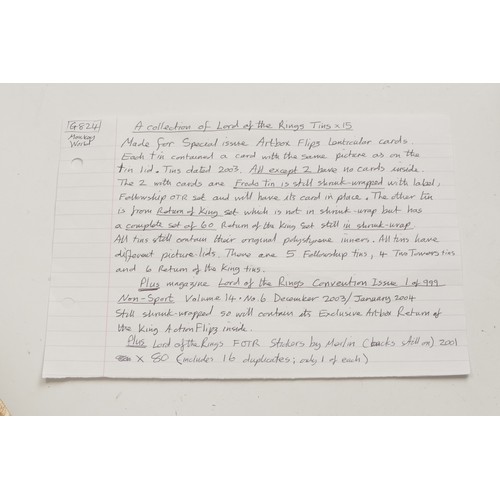 G824
Monkey
World
A collection of Lord of the Rings Tins x 15
Made for Special issue Artbox Flips Lenticular cards.
Each tin contained a card with the same picture as on the
tin lid. Tins dated 2003. All except 2 have no cards inside.
The 2 with cards are Frodo tin is still shrink-wrapped with label,
Fellowship OTR set and will have its card in place. The other tin
is from Return of King set which is not in shrink-wrap but has
a complete set of 60 Return of the King Set still in shrink-wrap.
All tins still contain their original polystyrene inners. All tins have
different picture lids. There are 5 Fellowship tins, 4 Two Towers tins
and 6 Return of the King tins.
Plus magazine Lord of the Rings Convention Issue 1 of 999
Non-Sport Volume 14 - No. 6 December 2003/January 2004
Still shrink-wrapped so will contain its Exclusive Artbox Return of
the King Action Flips inside.
Plus Lord of the Rings FOTR Stickers by Merlin (backs still on) 2001
x 80 (includes 16 duplicates; only 1 of each)